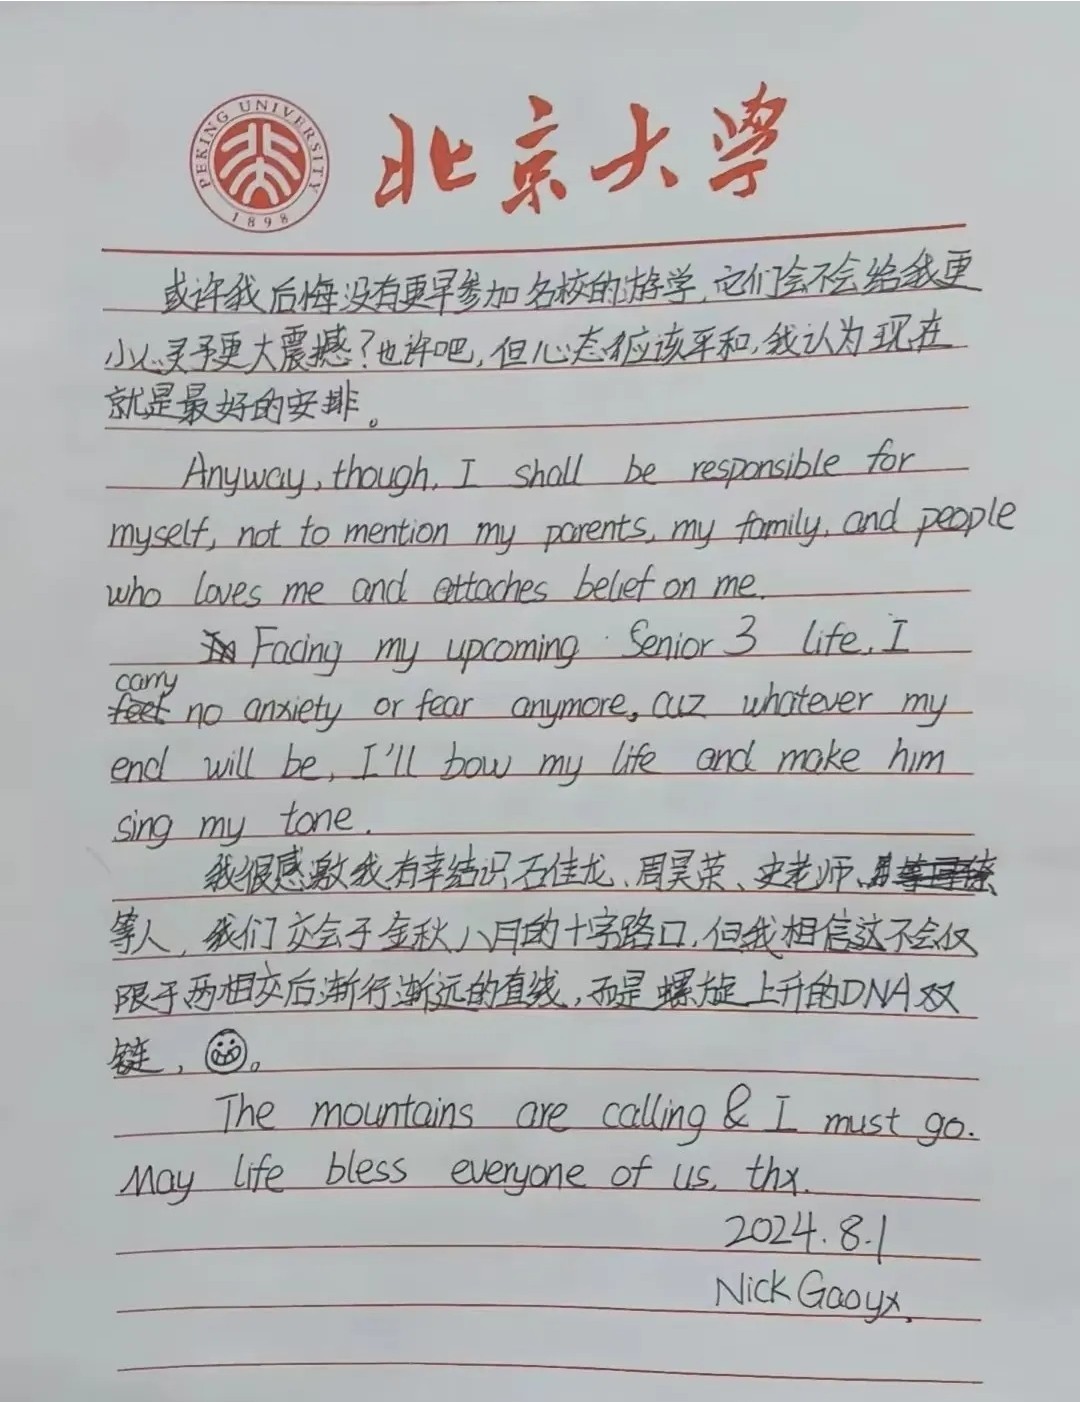 PEKING UNIVERSITY
1898
北京大学
或许我后悔没有更早参加名校的游学,它们会不会给我更
小心灵予更大震撼?也许吧,但心态应该平和,我认为现在
就是最好的安排。
Anyway, though, I shall be responsible for
myself, not to mention my parents, my family, and people
who loves me and attaches belief on me.
Facing my upcoming Senior 3 life, I
carry
feel no anxiety or fear anymore, cuz whatever my
end will be, I'll bow my life and make him
sing my tone.
我很感激我有幸结识石佳龙、周昊荣、史老师、
等人,我们交会于金秋八月的十字路口,但我相信这不会仅
限于两相交后渐行渐远的直线,而是螺旋上升的DNA双
链,。
The mountains are calling & I must go.
May life bless everyone of us. thx.
2024.8.1
Nick Gaoyx.